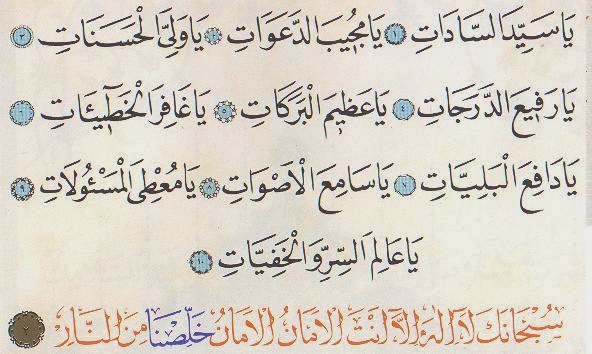 يَا سَيِّدَ السَّادَاتِ ١ يَا مُجِيبَ الدَّعَوَاتِ ٢ يَا وَلِيَّ الْحَسَنَاتِ ٣
يَا رَفِيعَ الدَّرَجَاتِ ٤ يَا عَظِيمَ الْبَرَكَاتِ ٥ يَا غَافِرَ الْخَطٓيئَاتِ ٦
يَا دَافِعَ الْبَلِيَّاتِ ٧ يَا سَامِعَ الْاَصْوَاتِ ٨ يَا مُعْطِىَ الْمَسْئُولَاتِ ٩
يَا عَالِمَ السِّرِّ وَالْخَفِيَّاتِ ١٠
سُبْحَانَكَ لَا اِلٰهَ اِلَّا اَنْتَ الْاَمَانُ الْاَمَانُ خَلِّصْنَا مِنَ النَّارِ ٢